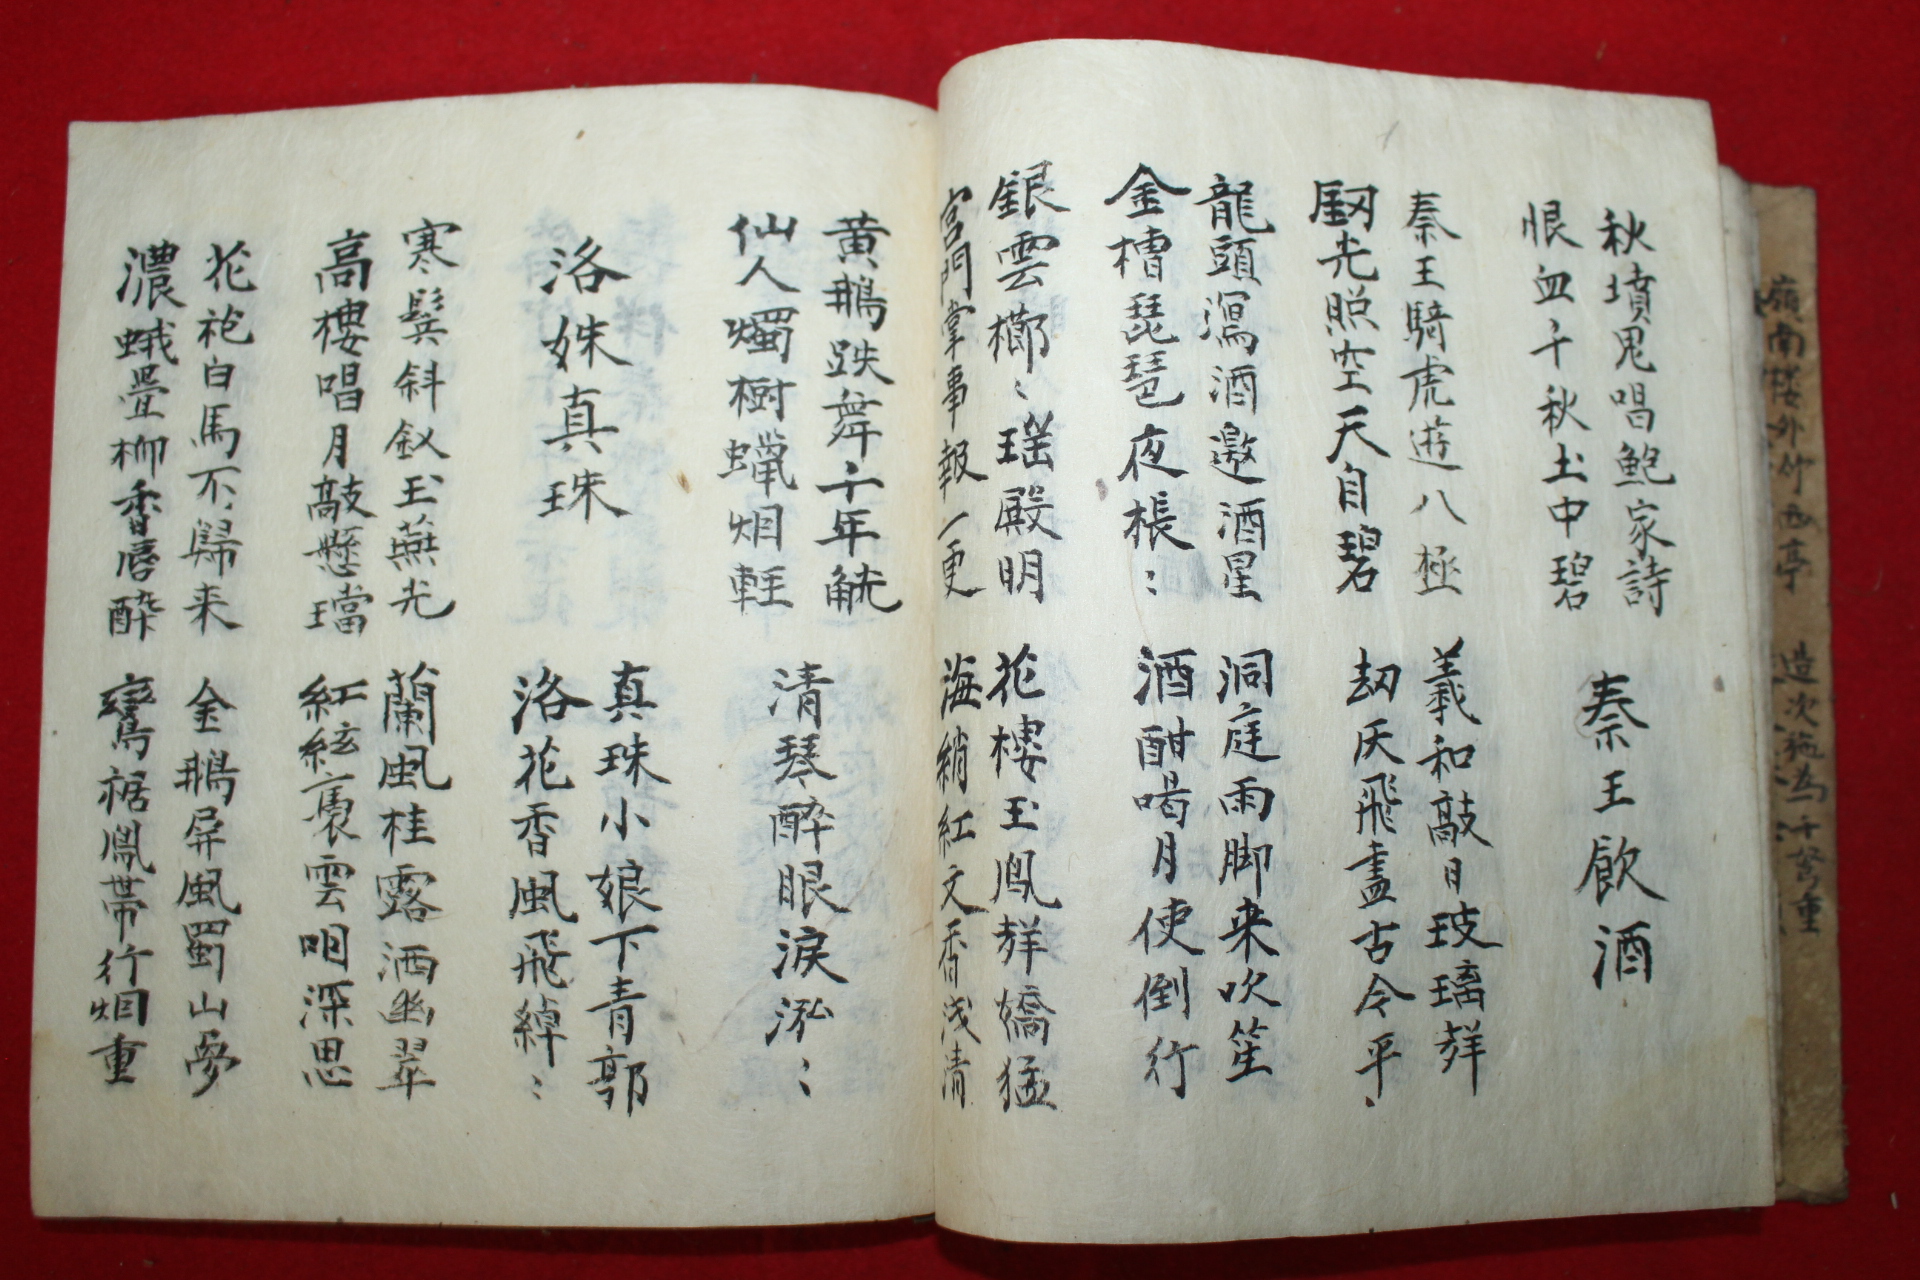 嶺南樓外竹西亭
造次施為千弩重
秋墳鬼唱鮑家詩
恨血千秋土中碧
秦王飲酒
秦王騎虎遊八極
劒光照空天自碧
羲和敲日玻璃声
劫灰飛盡古今平
龍頭瀉酒邀酒星
金槽琵琶夜棖〻
洞庭雨脚来吹笙
酒酣喝月使倒行
銀雲櫛〻瑤殿明
宮門掌事報一更
花樓玉鳳声嬌猛
海綃紅文香浅清
黄鵝跌舞千年觥
仙人燭樹蠟烟軽
清琴醉眼涙泓〻
洛姝真珠
真珠小娘下青郭
洛花香風飛綽〻
寒鬢斜釵玉燕光
高樓唱月敲懸璫
蘭風桂露洒幽翠
紅絃裊雲咽深思
花袍白馬不歸来
濃蛾疊柳香唇醉
金鵝屏風蜀山夢
鸞裾鳳帶行烟重